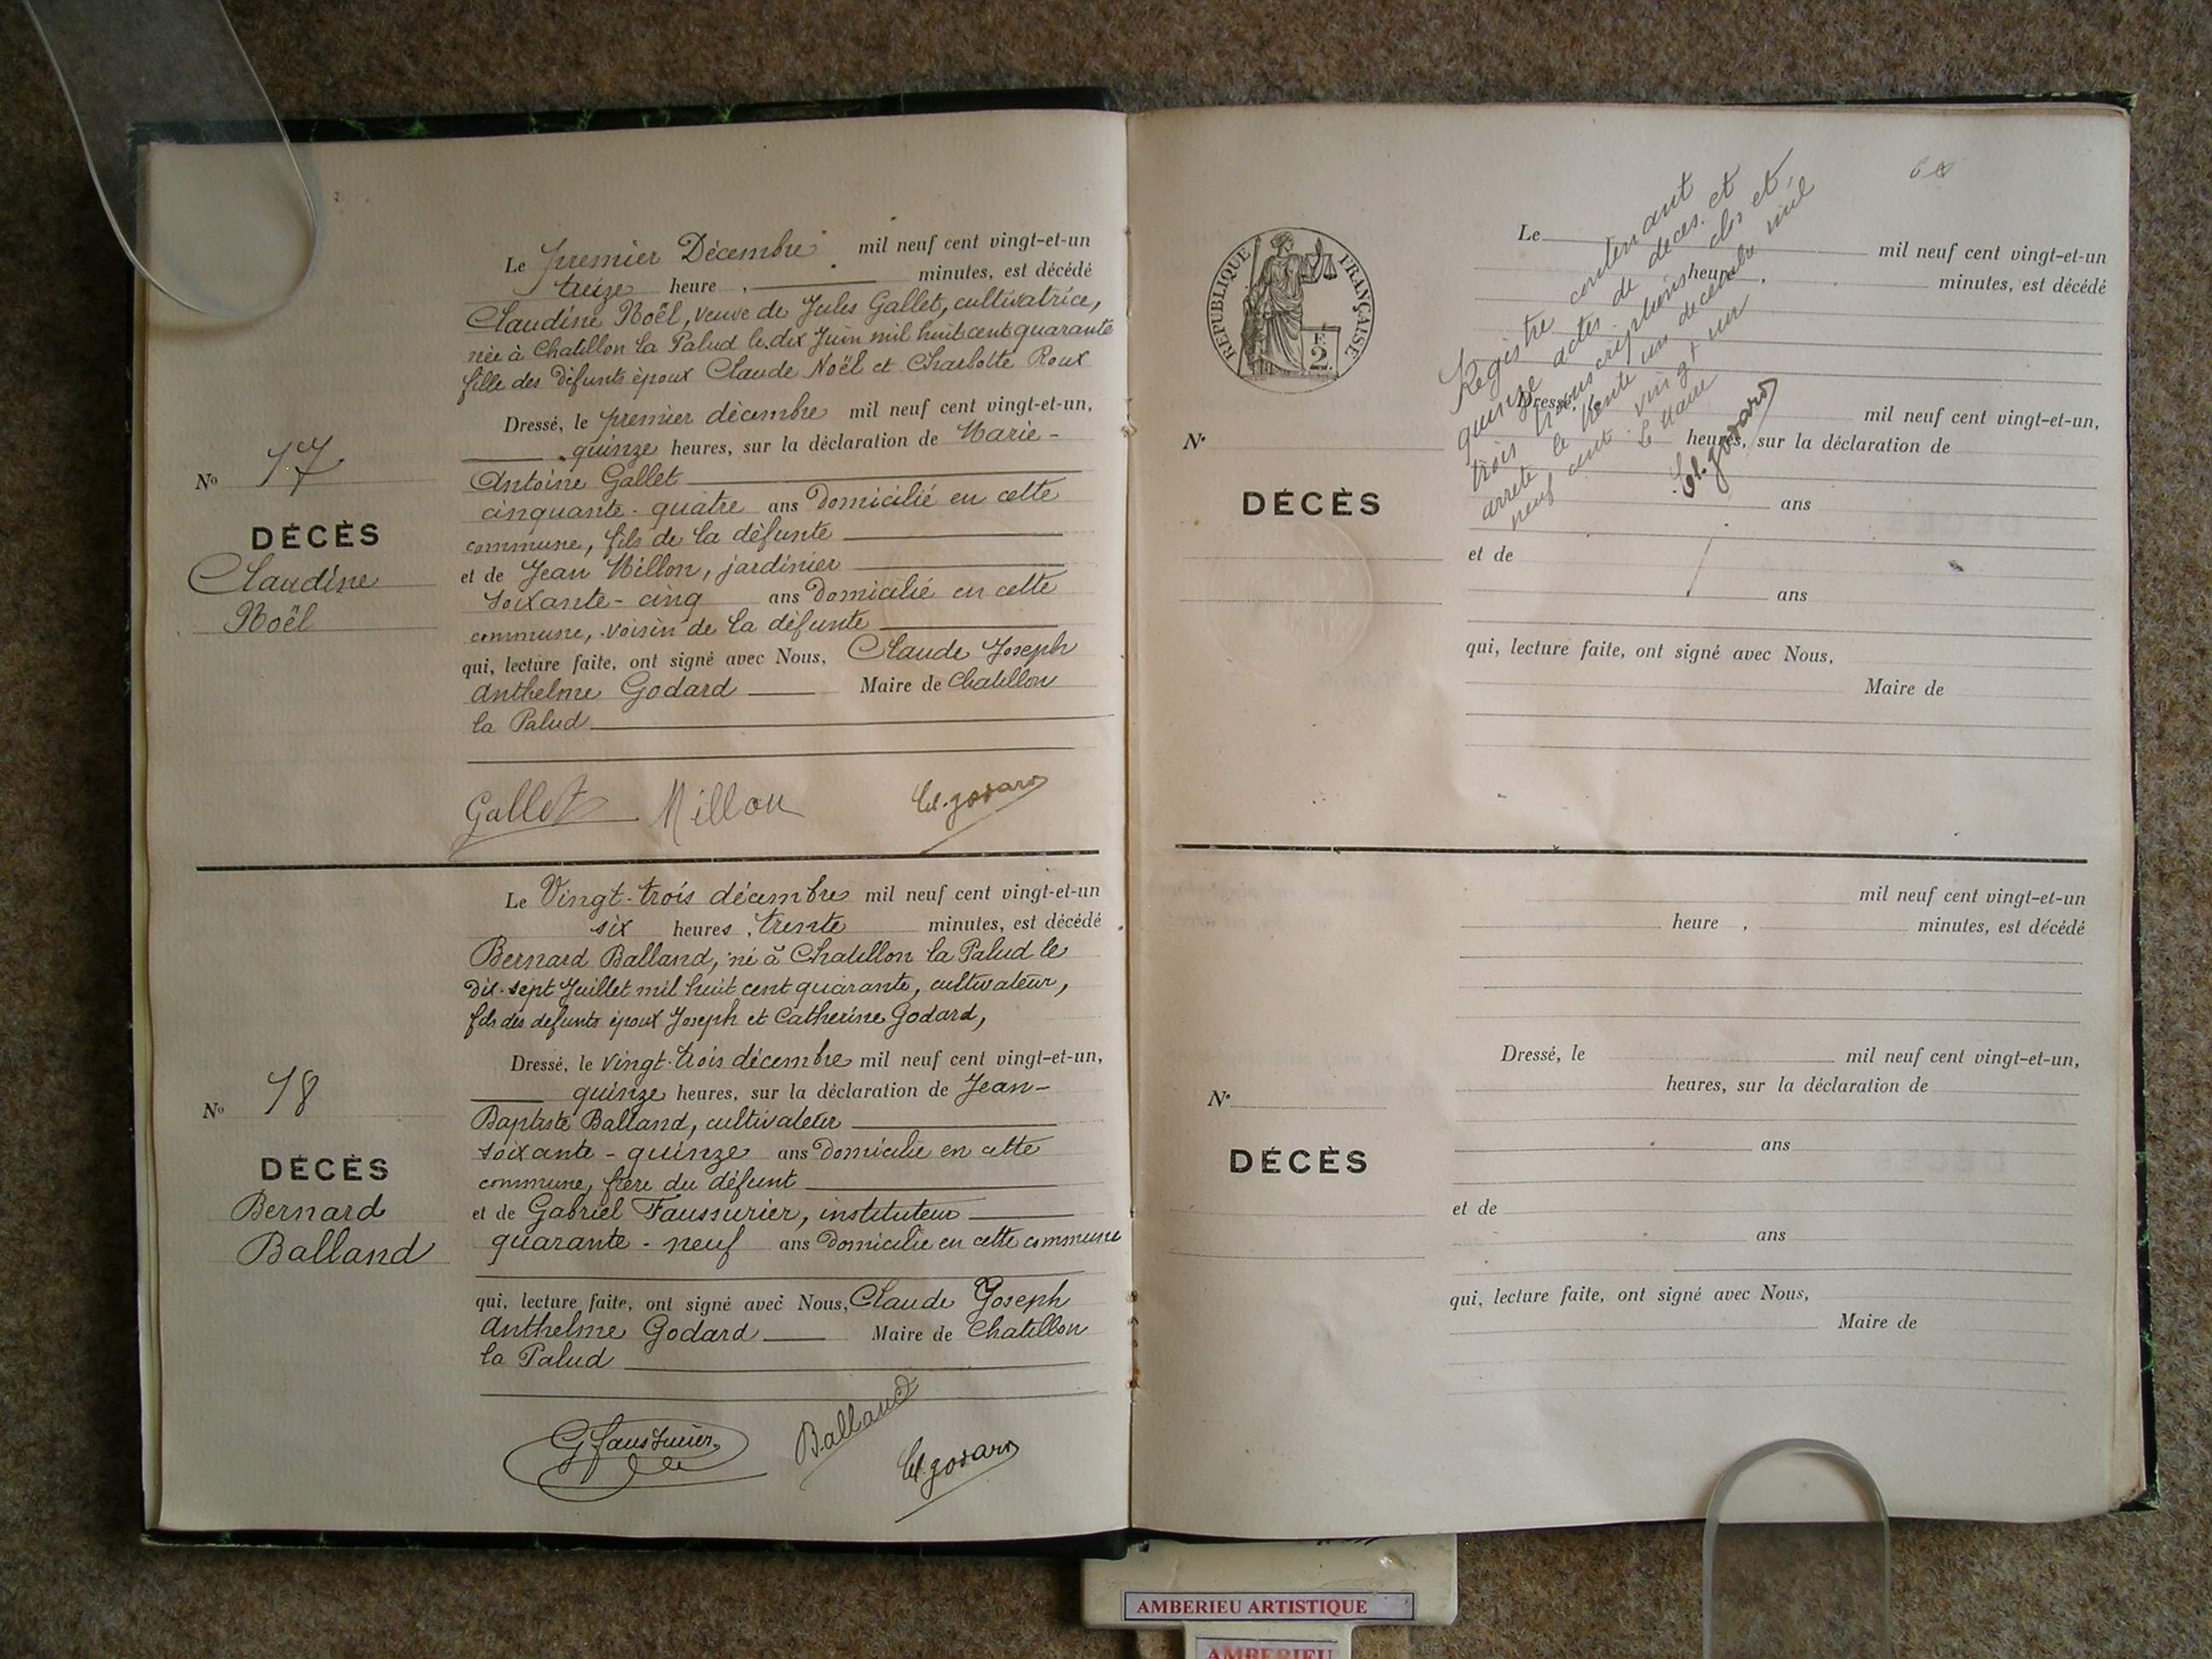 Le premier Décembre mil neuf cent vingt-et-un
treize heure , minutes, est décédé
Claudine Noël, veuve de Jules Gallet, cultivatrice,
née à Chatillon la Palud le dix Juin mil huit cent quarante
fille des défunts époux Claude Noël et Charlotte Roux
Dressé, le premier décembre mil neuf cent vingt-et-un,
quinze heures, sur la déclaration de Marie-
Antoine Gallet
cinquante-quatre ans Domicilié en cette
commune, fils de la défunte
et de Jean Millon, jardinier
soixante-cinq ans Domicilié en cette
commune, voisin de la défunte
qui, lecture faite, ont signé avec Nous, Claude Joseph
Anthelme Godard Maire de Chatillon
la Palud
Gallet Millon Cl. godard
No 17
DÉCÈS
Claudine
Noël
Le Vingt-trois décembre mil neuf cent vingt-et-un
six heures, trente minutes, est décédé
Bernard Balland, né à Chatillon la Palud le
dix-sept Juillet mil huit cent quarante, cultivateur,
fils des defunts époux Joseph et Catherine Godard,
Dressé, le vingt-trois décembre mil neuf cent vingt-et-un,
quinze heures, sur la déclaration de Jean-
Baptiste Balland, cultivateur
soixante-quinze ans Domicilié en cette
commune, frère du défunt
et de Gabriel Faussurier, instituteur
quarante-neuf ans Domicilié en cette commune
qui, lecture faite, ont signé avec Nous, Claude Joseph
Anthelme Godard Maire de Chatillon
la Palud
G faussurier Balland Cl. godard
No 18
DÉCÈS
Bernard
Balland
RÉPUBLIQUE FRANÇAISE
F.
2.
Le mil neuf cent vingt-et-un
heure , minutes, est décédé
Dressé, le mil neuf cent vingt-et-un,
heures, sur la déclaration de
ans
et de
ans
qui, lecture faite, ont signé avec Nous,
Maire de
N°
DÉCÈS
Registre contenant
quinze actes de décès et
trois transcriptions clos et
arrêté le trente un décembre mil
neuf cent vingt un
Le Maire
Cl. godard
mil neuf cent vingt-et-un
heure , minutes, est décédé
Dressé, le mil neuf cent vingt-et-un,
heures, sur la déclaration de
ans
et de
ans
qui, lecture faite, ont signé avec Nous,
Maire de
N°
DÉCÈS
AMBERIEU ARTISTIQUE
AMBERIEU